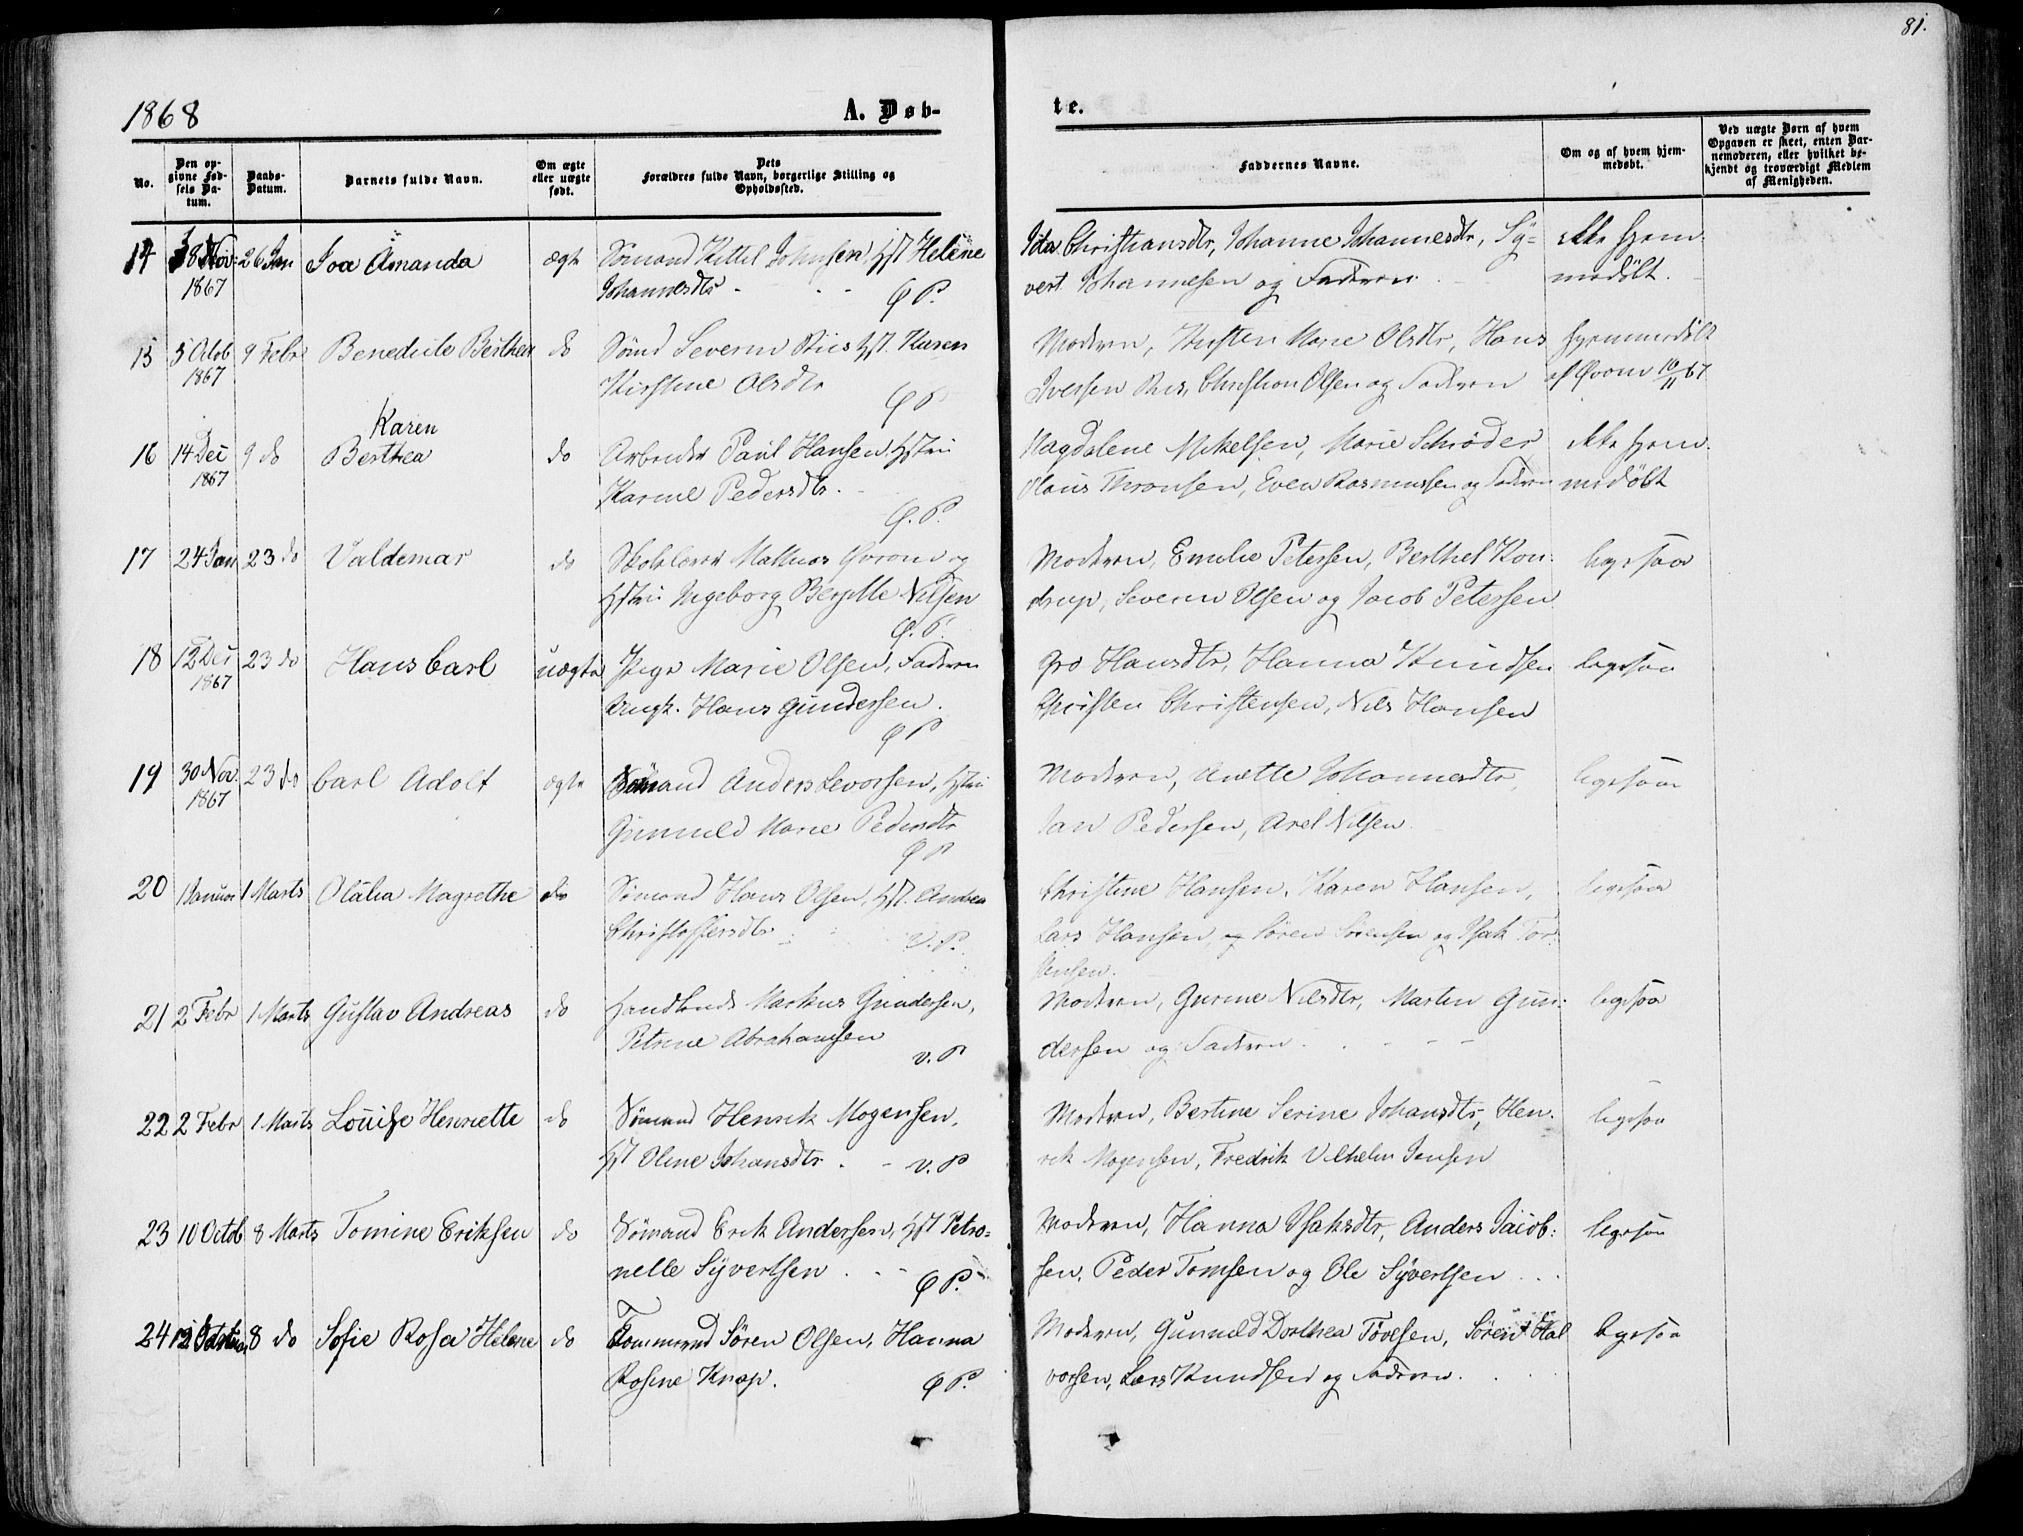 81.
1868
A. Døb-
te.
No.
Den op-
givne Fød-
sels Da-
tum.
Daabs-
Datum.
Barnets fulde Navn.
Om ægte
eller uægte
født.
Dets
Forældres fulde Navn, borgerlige Stilling og
Opholdssted.
Faddernes Navne.
Om og af hvem hjem-
medøbt.
Ved uægte Børn af hvem
Opgaven er skeet, enten Bar-
nemoderen, eller hvilket be-
kjendt og troværdigt Medlem
af Menigheden.
14 8 Nov 1867 26 Jan Amanda ægte Sømand Kittel Johnsen, Hst Helene
Johannesdtr
Ida Christiansdtr, Johanne Johannesdtr, Sy-
vert Johannesen og Faderen
ikke hjem-
medøbt.
15 5 Octob 1867 9 Febr Benedicte Berthea do Sømd Severin Riis Hst. Karen
Kirstine Olsdtr
Moderen, Kirsten Marie Olsdtr, Hans
Iversen Riis, Christian Olsen og Faderen
hjemmedøbt
af 10/11 67
16 14 Dec 1867 9 do Karen
Berthea do Arbeider Paul Hansen Hstru
Karine Pedersdtr.
Magdalene Mikelsen, Marie Schrøder
Olaus Thronsen, Even Rasmussen og Faderen
ikke hjem-
medøbt
17 24 Jan 23 do Valdemar do Skolelærer Mathias og
Hstru Ingeborg Bergitte Nilsen
Moderen, Emilie Petersen, Berthel Kon-
drup, Severin Olsen og Jacob Petersen
ligesaa
18 12 Dec 1867 23 do Hans Carl uægte Pige Marie Olsen, Faderen
Ungk. Hans Gundersen.
Gro Hansdtr, Hanna Knudsen
Christen Christensen, Nils Hansen
ligesaa
19 30 Nov. 1867 23 do Carl Adolf ægte Sømand Anders Levorsen, Hstru
Gunnild Marie Pedersdtr
Moderen, Anette Johannesdtr,
Jan Pedersen, Axel Nilsen
ligesaa
20 1 Januar 1 Marts Olalia Magrethe do Sømand Hans Olsen, Hst. Andrea
Christoffersdtr
V. P.
Christine Hansen, Karen Hansen,
Lars Hansen, og Søren Sørensen og Isak Tor-
kensen.
ligesaa
21 2 Febr 1 Marts Gustav Andreas do Handlende Markus Gundersen,
Petrine Abrahamsen
V. P
Moderen, Gurine Nilsdtr, Martin Gun-
dersen og Faderen
ligesaa
22 2 Febr 1 Marts Louise Henriette do Sømand Henrik Mogensen,
Hst Oline Johansdtr
V. P
Moderen, Bertine Serine Johansdtr, Hen-
rik Mogensen, Fredrik Vilhelm Jensen
ligesaa
23 10 Octob 8 Marts Tomine Eriksen do Sømand Erik Andersen, Hst Petro-
nelle Syvertsen
Moderen, Hanna Isaksdtr, Anders Jacob-
sen, Peder Tomsen og Ole Syvertsen
ligesaa
24 8 do Sofie Rosa Helene do Tømmermd Søren Olsen, Hanna
Rosine Knap.
Moderen, Gunnild Dorthea Tovesen, Søren Hal
vorsen, Lars Knudsen og Faderen.
ligesaa